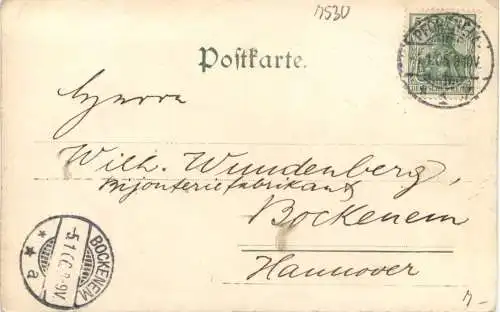 7530
Postkarte.
Herrn
Wilh. Wundenberg,
Bijouteriefabrikant
Bockenem
Hannover
BOCKENEM
* * a